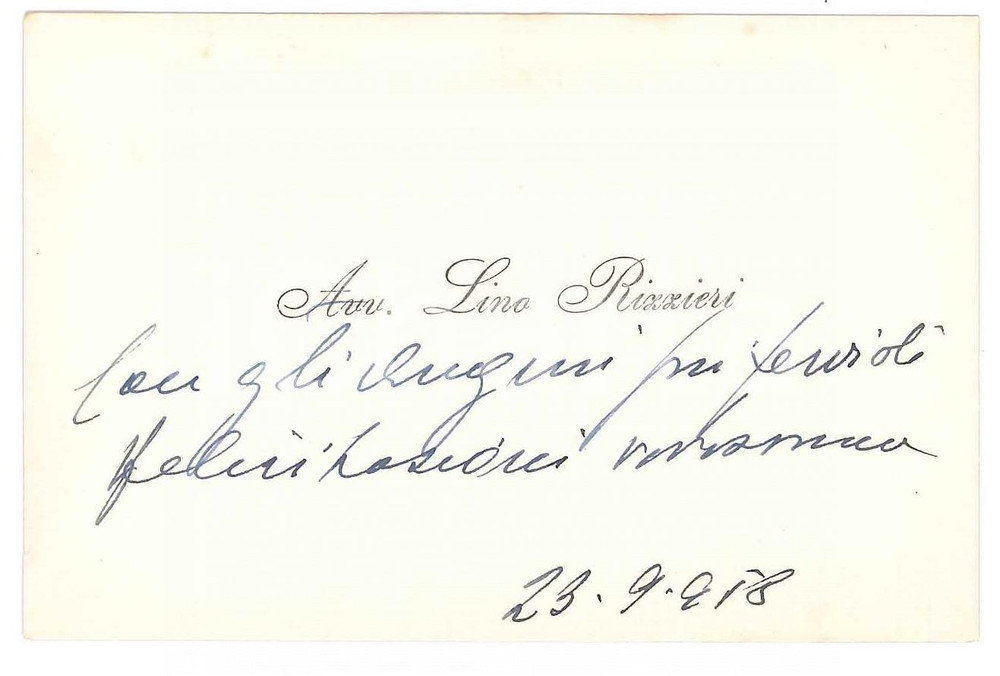 Avv. Lino Rizzieri
Con gli auguri più fervidi
felicitazioni vivissime
23.9.958